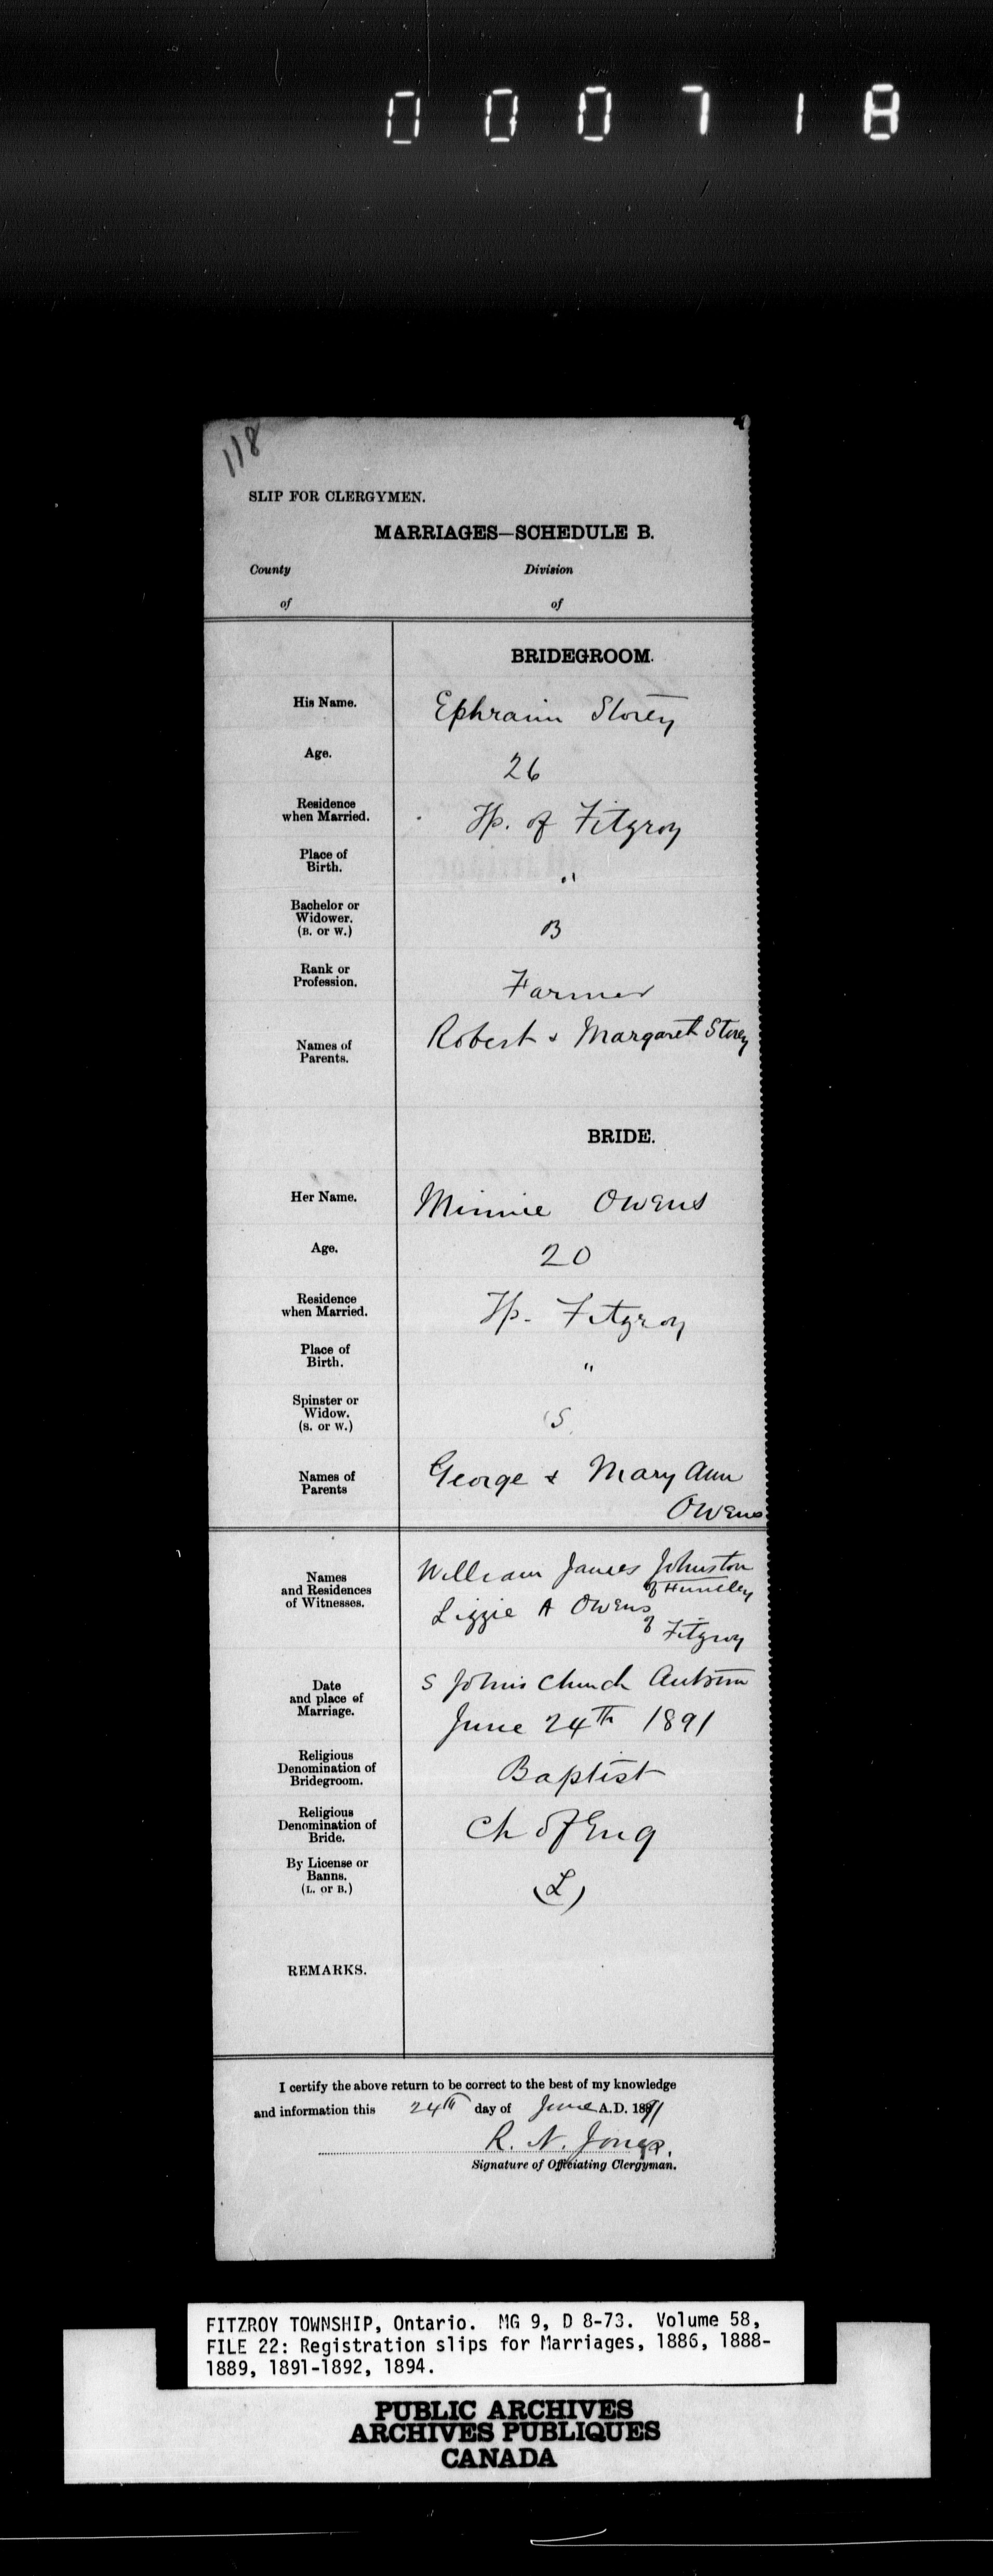 0 0 0 7 1 8
118
SLIP FOR CLERGYMEN.
MARRIAGES—SCHEDULE B.
County Division
of of
BRIDEGROOM.
His Name. Ephraim Storey
Age. 26
Residence
when Married. Tp. of Fitzroy
Place of
Birth. "
Bachelor or
Widower.
(B. or W.) B
Rank or
Profession. Farmer
Names of
Parents. Robert & Margaret Storey
BRIDE.
Her Name. Minnie Owens
Age. 20
Residence
when Married. Tp. Fitzroy
Place of
Birth. "
Spinster or
Widow.
(S. or W.) S
Names of
Parents George & Mary Ann
Owens
Names
and Residences
of Witnesses. William James Johnston
of Huntley
Lizzie A Owens
of Fitzroy
Date
and place of
Marriage. S Johns Church Antrim
June 24th 1891
Religious
Denomination of
Bridegroom. Baptist
Religious
Denomination of
Bride. Ch of Eng
By License or
Banns.
(L. or B.) (L)
REMARKS.
I certify the above return to be correct to the best of my knowledge
and information this 24th day of June A.D. 1891
R. N. Jones.
Signature of Officiating Clergyman.
FITZROY TOWNSHIP, Ontario. MG 9, D 8-73. Volume 58,
FILE 22: Registration slips for Marriages, 1886, 1888-
1889, 1891-1892, 1894.
PUBLIC ARCHIVES
ARCHIVES PUBLIQUES
CANADA